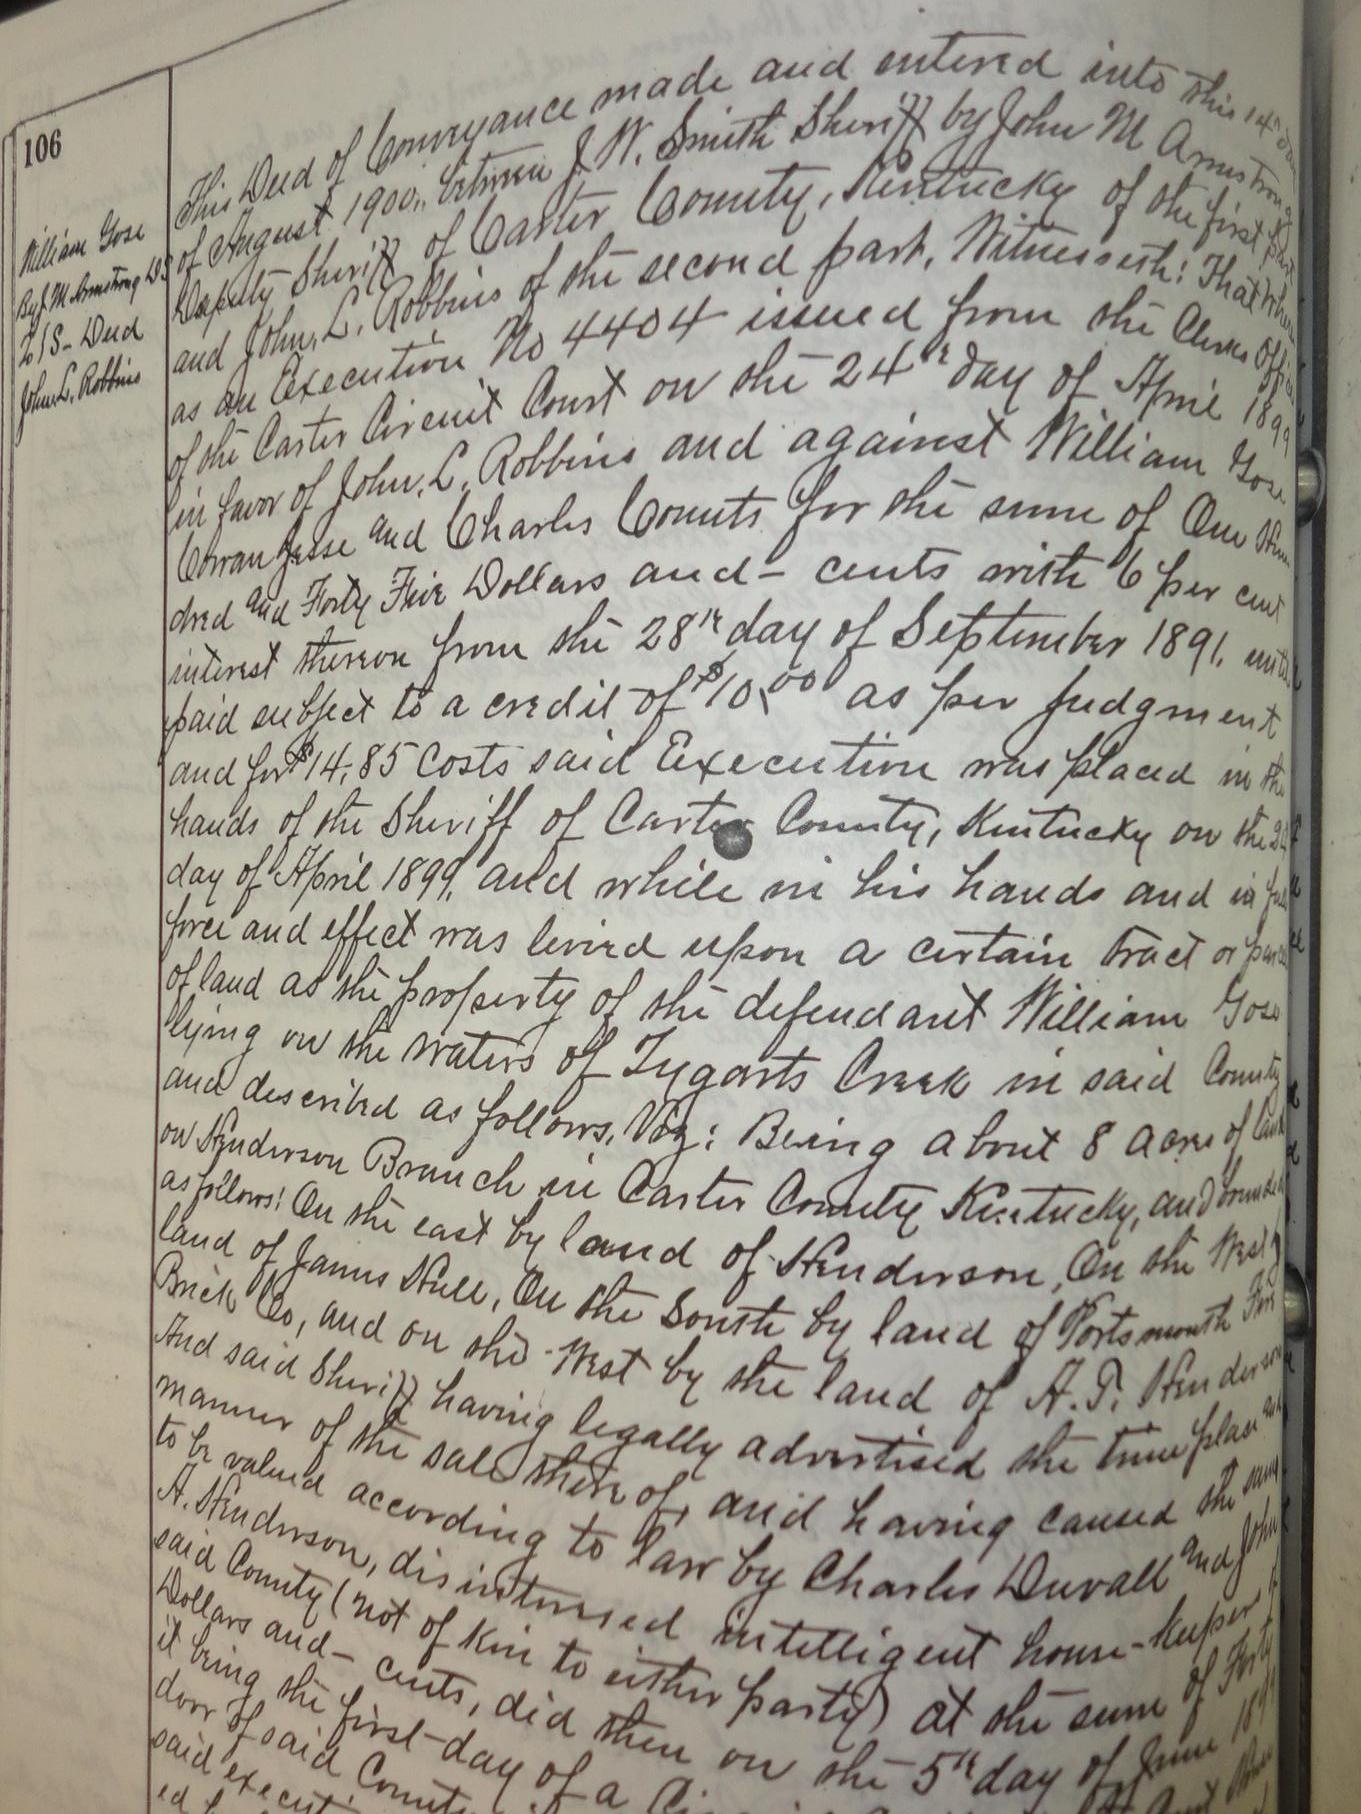 106
William Gose
By J. M. Armstrong D.S.
To | S - Deed
John L. Robbins
This Deed of Conveyance made and entered into this 14th day
of August 1900, between J. W. Smith Sheriff by John M Armstrong
Deputy Sheriff of Carter County, Kentucky of the first part
and John, L, Robbins of the second part, Witnesseth: That where
as an Execution No 4404 issued from the Clerks Office
of the Carter Circuit Court on the 24th day of April 1899
in favor of John, L, Robbins and against William Gose
Cowan Jesse and Charles Counts for the sum of One Hun
dred and Forty Five Dollars and - cents with 6 per cent
interest thereon from the 28th day of September 1891, until
paid subject to a credit of $10.00 as per Judgment
and for $14,85 Costs said Execution was placed in the
hands of the Sheriff of Carter County, Kentucky on the
day of April 1899, and while in his hands and in full
force and effect was levied upon a certain tract or parcel
of land as the property of the defendant William Gose
lying on the waters of Tygarts Creek in said County
and described as follows, Viz: Being about 8 acres of land
on Henderson Branch in Carter County Kentucky, and bounded
as follows: On the east by land of Henderson, On the West by
land of James Hull, On the South by land of Portsmouth Fire
Brick Co, and on the West by the land of A. T. Henderson
And said Sheriff having legally advertised the time place and
manner of the sale there of, and having caused the same
to be valued according to law by Charles Duvall and John
A. Henderson, disinterested intelligent house-keepers of
said County (not of kin to either party) at the sum of Forty
Dollars and - cents, did then on the 5th day of June 1899
it being the first day of a
door of said County
said
ed